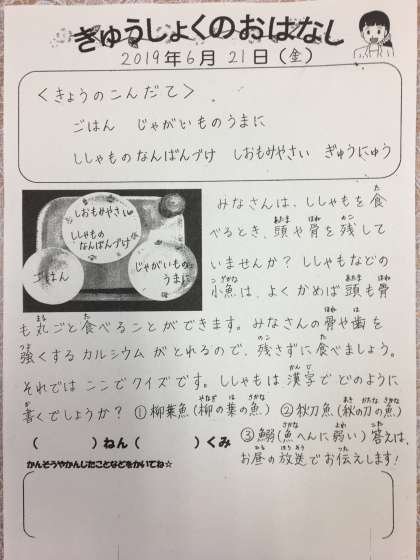 きゅうしょくのおはなし
2019年6月21日(金)
<きょうのこんだて>
ごはん じゃがいものうまに
ししゃものなんばんづけ しおもみやさい ぎゅうにゅう
しおもみやさい
ししゃもの
なんばんづけ
ごはん
じゃがいもの
うまに
みなさんは、ししゃもを食
べるとき、頭や骨を残して
いませんか?ししゃもなどの
小魚は、よくかめば頭も骨
も丸ごと食べることができます。みなさんの骨や歯を
強くするカルシウムがとれるので、残さずに食べましょう。
それではここでクイズです。ししゃもは漢字でどのように
書くでしょうか?①柳葉魚(柳の葉の魚)②秋刀魚(秋の刀の魚)
③鰯(魚へんに弱い)答えは、
お昼の放送でお伝えします!
( )ねん( )くみ
かんそうやかんじたことなどをかいてね☆